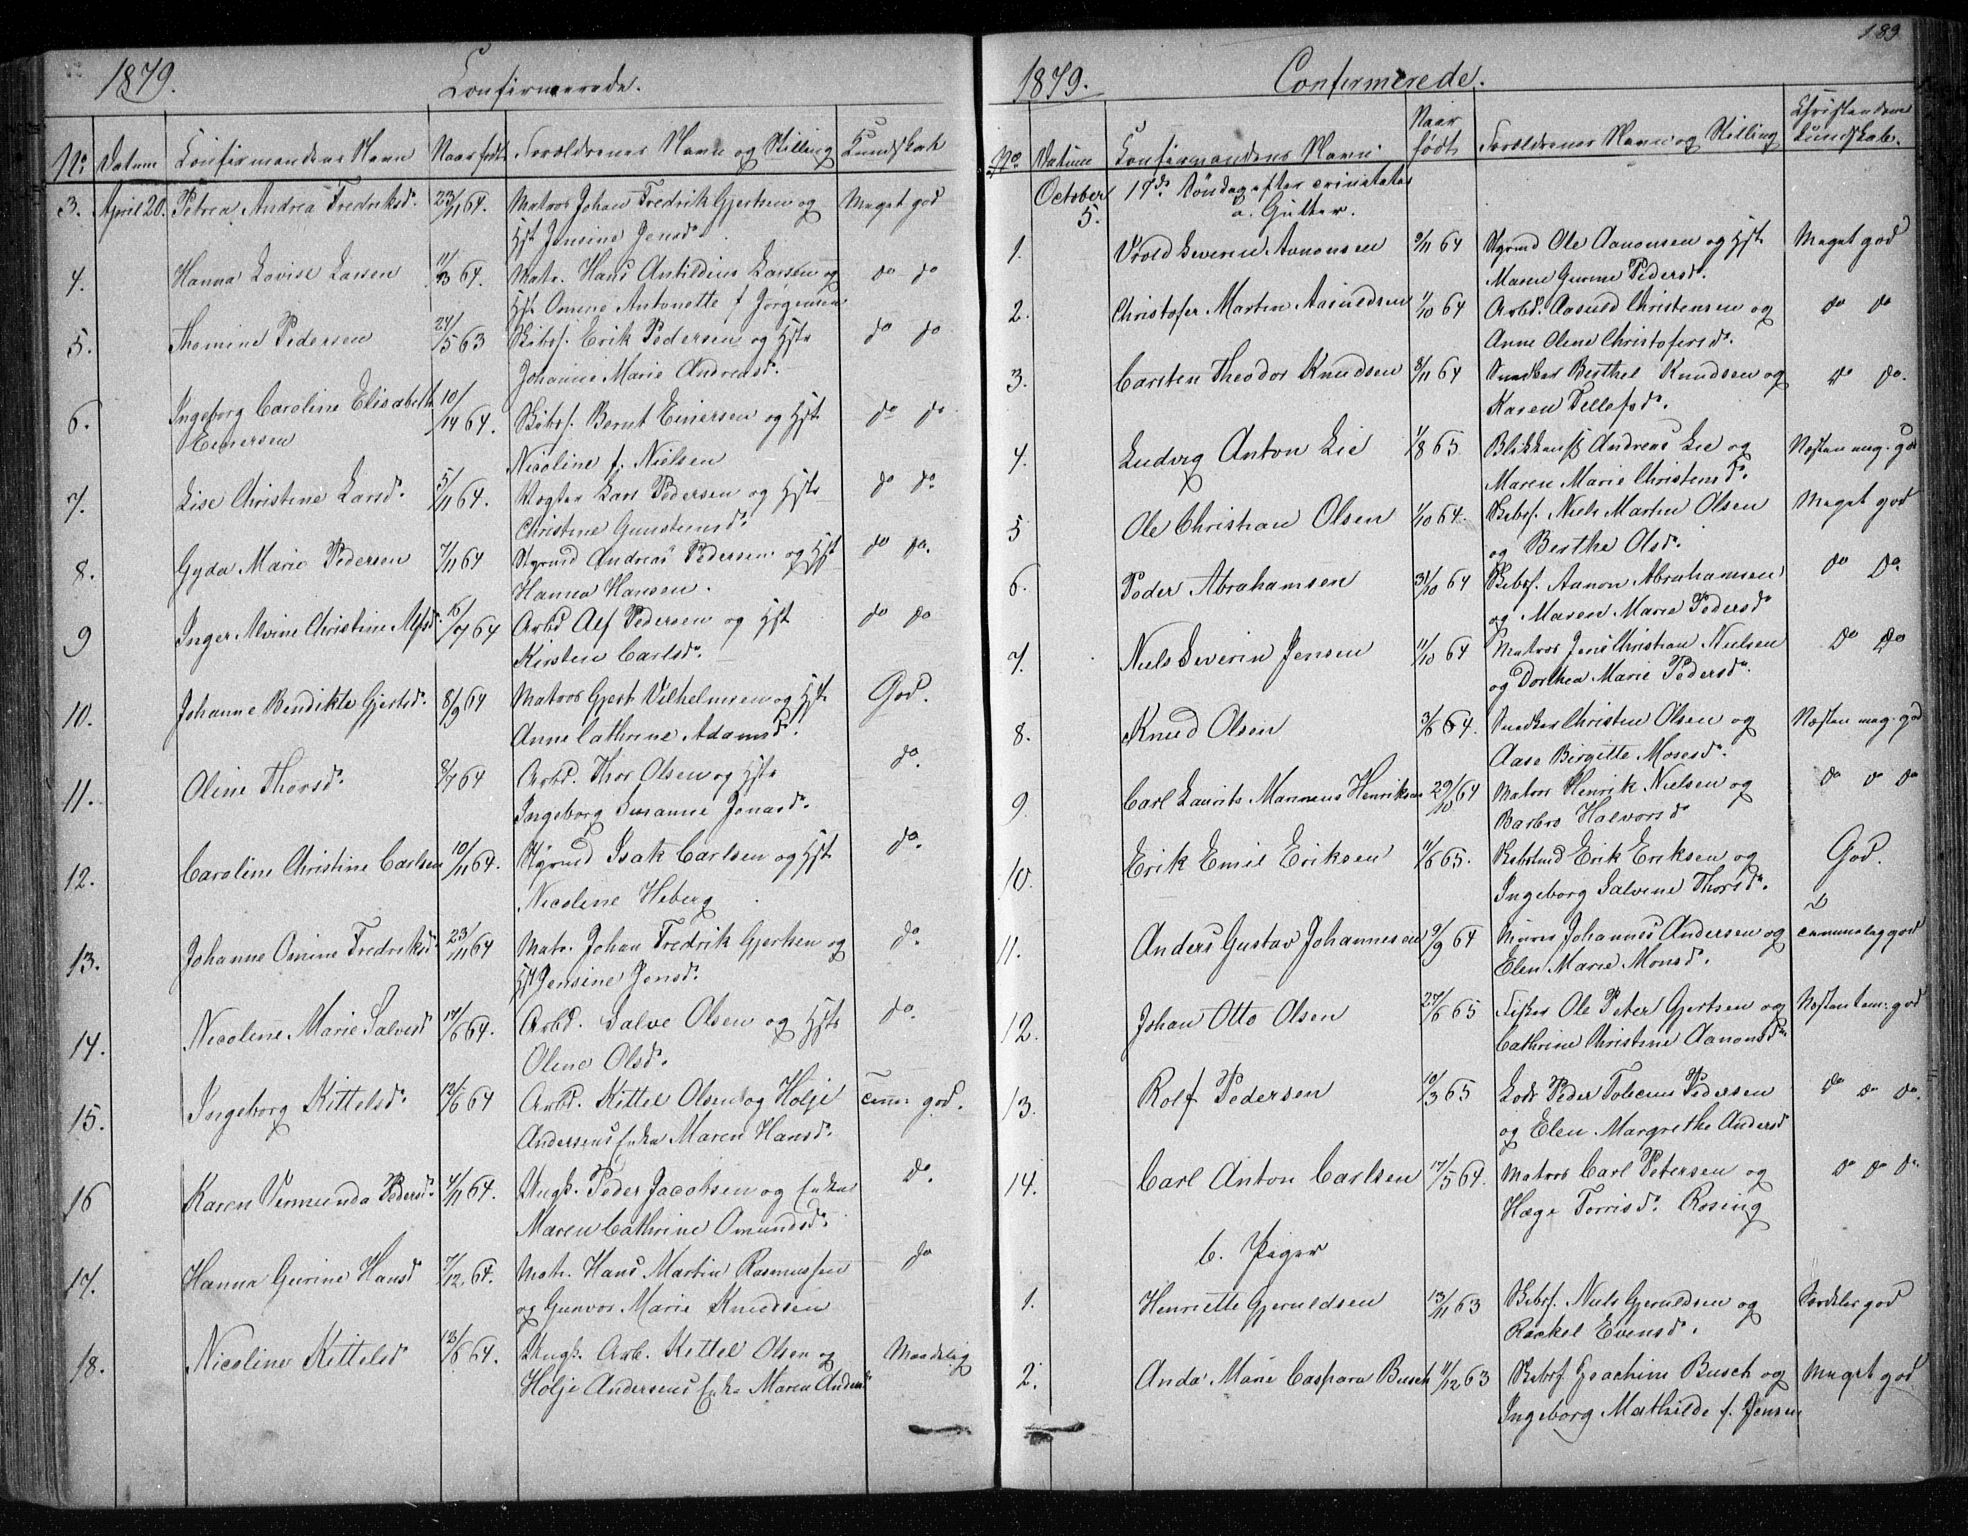 1879.
Confirmerede.
No Datum Confirmandens Navn Naar født Forældrenes Navn og Stilling Kundskab
3. April 20. Petrea Andrea Fredriksd. 23/11 64. Matros Johan Fredrik Gjertsen og Meget god
Hst Jensine Jensd.
4. Hanna Lovise Larsen 11/3 64. Matr. Hans Antildius Larsen og do do
Hst Omine Antonette f Jørgensen
5. Thomine Pedersen 24/5 63 Skibsf. Erik Pedersen og Hstr do do
Johanne Marie Andreasd.
6. Ingeborg Caroline Elisabeth 10/14 64. Skibsf. Bernt Einersen og Hst do do
Einersen
Nicoline f. Nielsen
7. Lise Christine Larsd. 5/11 64. Vægter Lars Pedersen og Hstr do do
Christine Gunstensd.
8. Gyda Marie Pedersen 7/11 64 Styrmd Andreas Pedersen og Hst do do.
Hanna Hansen.
9 Inger Alvine Christine Alfsd. 16/7 64 Arbd Alf Pedersen og Hst do do
Kirsten Carlsd.
10. Johanne Bendikte Gjertsd. 8/9 64 Matros Gjert Vilhelmsen og Hst God.
Anne Cathrine Adamsd.
11. Oline Thorsd. 8/7 64 Arbd. Thor Olsen og Hstr do.
Ingeborg Susanne Jonasd.
12. Caroline Christine Carlsen 10/11 64. Styrmd Isak Carlsen og Hst do.
Nicoline Heberg
13. Johanne Omine Fredriksd. 23/11 64 Matr. Johan Fredrik Gjertsen og do.
Hst Jensine Jensd.
14. Nicoline Marie Salvesd 17/6 64. Arbd. Salve Olsen og Hstr do.
Oline Olsd.
15. Ingeborg Kittelsd. 12/6 64 Arbd. Kittel Olsen og Holje Temm. god.
Andersens Enke Maren Hansd.
16 Karen Vermunda Pedersd. 4/11 64. Ungk. Peder Jacobsen og Enke do.
Maren Cathrine Omundsd.
17. Hanna Gurine Hansd 7/12 64. Matr. Hans Martin Rasmussen do
og Gunvor Marie Knudsen
18. Nicoline Kittelsd 12/6 64. Ungk. Arb. Kittel Olsen og Maadelig
Holje Andersens Enke Maren Andersd
189
1879.
Confirmerede.
No Datum Confirmandens Navn. Naar født Forældrenes Navn og Stilling Christendoms Kundskab.
October 5. 17de Søndag efter trinitatis
a. Gutter.
1. Severin Aanonsen 9/11 64 Styrmd Ole Aanonsen og Hstr Meget god
Maren Gurine Pedersd.
2. Christofer Martin Aasuldsen 1/10 64 Arbd. Aasuld Christensen og do do
Anne Olene Christofersd.
3. Carsten Theodor Knudsen 8/11 64 Snedker Berthel Knudsen og do do.
Karen Tellefsd.
4. Ludvig Anton Lie 1/8 65 Blikkensl Andreas Lie og Næsten meg. god
Maren Marie Christensd.
5 Ole Christian Olsen 1/10 64. Skibsf. Niels Martin Olsen Meget god
og Berthe Olsd.
6. Peder Abrahamsen 31/10 64 Skibsf. Aanon Abrahamsen do do.
og Maren Marie Pedersd
7. Niels Severin Jensen 11/10 64 Matros Jens Christian Nielsen do do
og Dorthea Marie Pedersd.
8. Knud Olsen 3/6 64. Snedker Christen Olsen og Næsten meg. god
Aase Birgitte Mosesd.
9. Carl Laurits Marinus Henriksen 29/10 64 Matros Henrik Nielsen og do do do
Barbro Halvorsd
10. Erik Emil Eriksen 11/6 65. Erik Eriksen og God.
Ingeborg Salvine Thorsd.
11. Anders Gustav Johannesen 9/9 64 Murer Johannes Andersen og temmelig god
Elen Marie Monsd.
12. Johan Otto Olsen 27/6 65 Fisker Ole Peter Gjertsen og Næsten tem. god
Cathrine Christine Aanonsd.
13. Rolf Pedersen 10/3 65 Lods Peder Pedersen do do do.
og Elen Margrethe Andersd
14. Carl Anton Carlsen 17/5 64. Matros Carl Petersen og do do do
Hæge Torrisd. Rosing
b. Piger
1. Henriette Gjeruldsen 13/11 63 Skibsf. Niels Gjeruldsen og Særdeles god
Rachel Evensd.
2. Anda Marie Caspara Busch 11/12 63 Skibsf Joachim Busch og Meget god
Ingeborg Mathilde f. Jensen